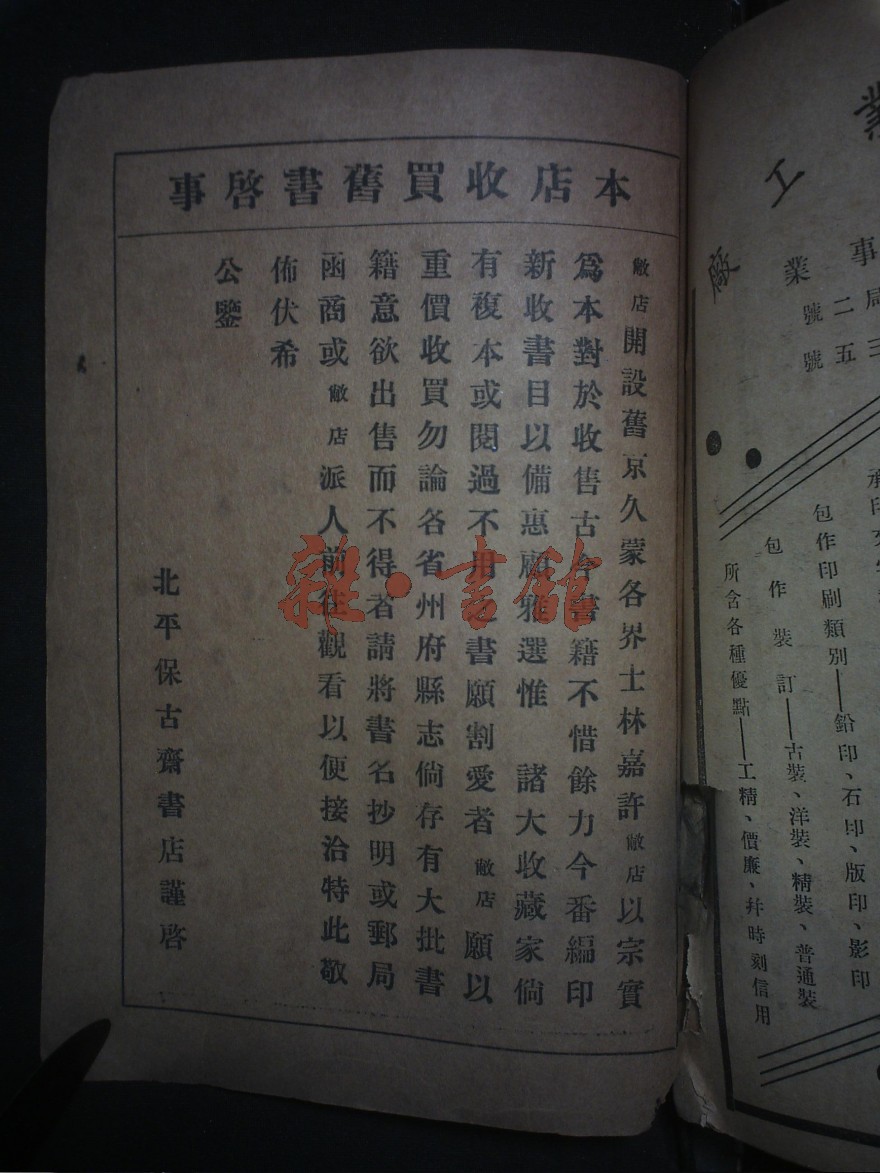 本店收買舊書啓事
敝店開設舊京久蒙各界士林嘉許敝店以宗實
爲本對於收售古今書籍不惜餘力今番編印
新收書目以備惠顧雅選惟　諸大收藏家倘
有複本或閱過不用之書願割愛者敝店願以
重價收買勿論各省州府縣志倘存有大批書
籍意欲出售而不得者請將書名抄明或郵局
函商或敝店派人前往觀看以便接洽特此敬
佈伏希
公鑒
北平保古齋書店謹啓
雜·書館
業
工
廠
事
業
局三
號二五號
包作印刷類別——鉛印、石印、版印、影印
包作裝訂——古裝、洋裝、精裝、普通裝
所含各種優點——工精、價廉、幷時刻信用